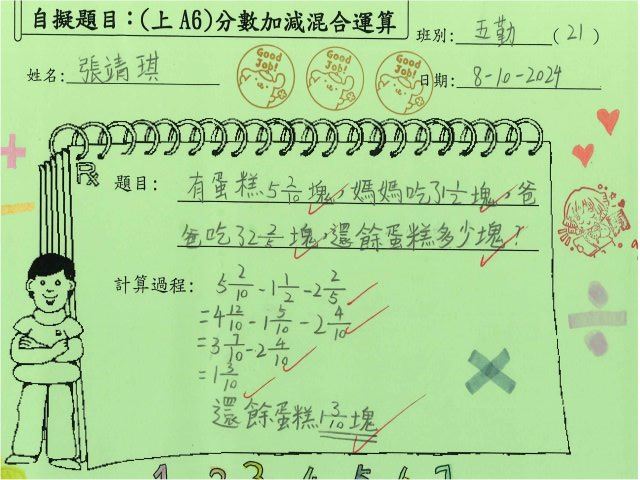 自擬題目：(上A6)分數加減混合運算
班別：五勤（21）
姓名：張靖琪
日期：8-10-2024
Good Job! Good Job! Good Job!
Rx
題目：有蛋糕5 2/10塊，媽媽吃了1 1/2塊，爸
爸吃了2 2/5塊，還餘蛋糕多少塊？
計算過程：5 2/10 - 1 1/2 - 2 2/5
= 4 12/10 - 1 5/10 - 2 4/10
= 3 7/10 - 2 4/10
= 1 3/10
還餘蛋糕1 3/10塊
1 2 3 4 5 6 7